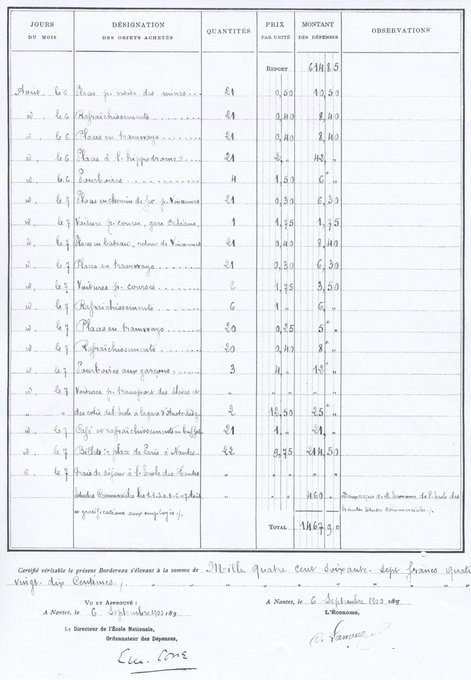 JOURS DU MOIS | DÉSIGNATION DES OBJETS ACHETÉS | QUANTITÉS | PRIX PAR UNITÉ | MONTANT DES DÉPENSES | OBSERVATIONS
REPORT 614 85
Août le 6 Places p. visite des 21 0,50 10,50
d°, le 6 Rafraîchissements 21 0,40 8,40
d°, le 6 Places en tramways 21 0,40 8,40
d°, le 6 Places à l'hippodrome 21 2,,, 42 ,,
d°, le 6 Pourboires 4 1,50 6 ,,
d°, le 7 Places en chemin de fer p. Vincennes 21 0,30 6,30
d°, le 7 Voiture p. course, gare Orléans 1 1,75 1,75
d°, le 7 Places en bateau, retour de Vincennes 21 0,40 8,40
d°, le 7 Places en tramways 21 0,30 6,30
d°, le 7 Voitures p. courses 2 1,75 3,50
d°, le 7 Rafraîchissements 6 1,,, 6,,,
d°, le 7 Places en tramways 20 0,25 5 ,,
d°, le 7 Rafraîchissements 20 0,40 8 ,,
d°, le 7 Pourboires aux garçons 3 4,,, 12 ,,
d°, le 7 Voitures p. transport des élèves et
,, ,, des colis de l'école à la gare d'Austerlitz 2 12,50 25 ,,
d°, le 7 Café et rafraîchissements au buffet 21 1,,, 21,,,
d°, le 7 Billets de place de Paris à Nantes 22 9,75 214,50
d°, le 7 frais de séjour à l'Ecole des Hautes
Etudes Commerciales les 1. 2. 3. 4. 5. 6 et 7 Août
et gratifications aux employés ./. 460 ,, D'après reçus de M. l'économe de l'école des
hautes études commerciales ./.
TOTAL 1467 90
Certifié véritable le présent Bordereau s'élevant à la somme de Mille quatre cent soixante-sept francs quatre
vingt-dix Centimes ./.
VU ET APPROUVÉ :
A Nantes, le 6 Septembre 1900 189
Le Directeur de l'École Nationale,
Ordonnateur des Dépenses,
A Nantes, le 6 Septembre 1900 189
L'Économe,